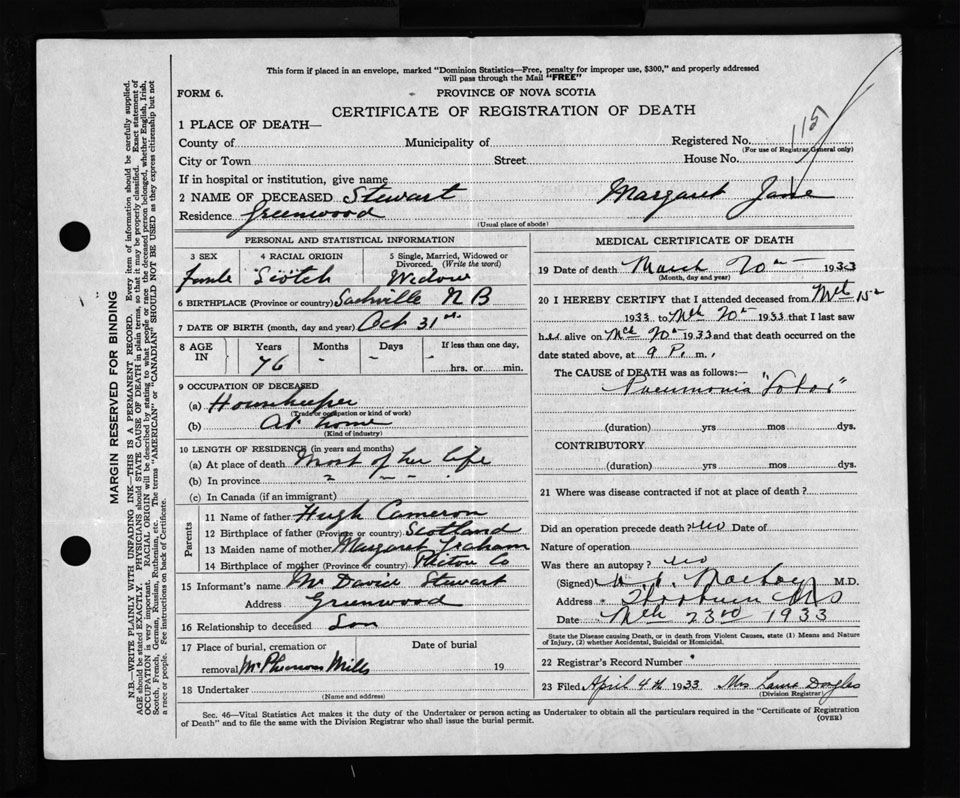 This form if placed in an envelope, marked "Dominion Statistics—Free, penalty for improper use, $300," and properly addressed
will pass through the Mail "FREE"
FORM 6. PROVINCE OF NOVA SCOTIA
CERTIFICATE OF REGISTRATION OF DEATH
115
1 PLACE OF DEATH—
County of Municipality of Registered No.
(For use of Registrar General only)
City or Town Street House No.
If in hospital or institution, give name
2 NAME OF DECEASED Stewart Margaret Jane
Residence Greenwood
(Usual place of abode)
PERSONAL AND STATISTICAL INFORMATION
3 SEX 4 RACIAL ORIGIN 5 Single, Married, Widowed or Divorced. (Write the word)
Female Scotch Widow
6 BIRTHPLACE (Province or country) Sackville N B
7 DATE OF BIRTH (month, day and year) Oct 31st
8 AGE IN Years Months Days If less than one day,
76 - - hrs. or min.
9 OCCUPATION OF DECEASED
(a) Housekeeper
(Trade or occupation or kind of work)
(b) At home
(Kind of industry)
10 LENGTH OF RESIDENCE (in years and months)
(a) At place of death Most of her life
(b) In province " " "
(c) In Canada (if an immigrant)
Parents
11 Name of father Hugh Cameron
12 Birthplace of father (Province or country) Scotland
13 Maiden name of mother Margaret Graham
14 Birthplace of mother (Province or country) Pictou Co
15 Informant's name Mr David Stewart
Address Greenwood
16 Relationship to deceased Son
17 Place of burial, cremation or removal Date of burial
McPhersons Mills 19
18 Undertaker
(Name and address)
MEDICAL CERTIFICATE OF DEATH
19 Date of death March 20th 1933
(Month, day and year)
20 I HEREBY CERTIFY that I attended deceased from Mch 15th
1933 to Mch 20th 1933 that I last saw
her alive on Mch 20th 1933 and that death occurred on the
date stated above, at 9 P. m.
The CAUSE of DEATH was as follows:—
Pneumonia "Lobar"
(duration) yrs mos dys.
CONTRIBUTORY
(duration) yrs mos dys.
21 Where was disease contracted if not at place of death?
Did an operation precede death? no Date of
Nature of operation
Was there an autopsy? no
(Signed) M.D.
Address Thorburn NS
Date Mch 23rd 1933
State the Disease causing Death, or in death from Violent Causes, state (1) Means and Nature
of Injury, (2) whether Accidental, Suicidal or Homicidal.
22 Registrar's Record Number
23 Filed April 4th 1933 Mrs Laura Douglas
(Division Registrar)
Sec. 46—Vital Statistics Act makes it the duty of the Undertaker or person acting as Undertaker to obtain all the particulars required in the "Certificate of Registration
of Death" and to file the same with the Division Registrar who shall issue the burial permit. (OVER)
MARGIN RESERVED FOR BINDING
N.B.—WRITE PLAINLY WITH UNFADING INK—THIS IS A PERMANENT RECORD. Every item of information should be carefully supplied.
AGE should be stated EXACTLY. PHYSICIANS should STATE CAUSE OF DEATH in plain terms, so that it may be properly classified. Exact statement of
OCCUPATION is very important. RACIAL ORIGIN will be described by stating to what people or race the deceased person belonged, whether English, Irish,
Scotch, French, German, Russian, Ruthenian, etc. The terms "AMERICAN" or "CANADIAN" SHOULD NOT BE USED as they express citizenship but not
a race or people. See instructions on back of Certificate.